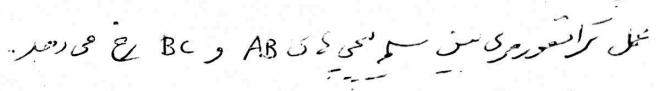 عمل ترانسفورمری بین سیم پیچی های AB و BC رخ می دهد.